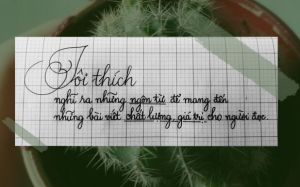 Tôi thích
nghĩ ra những ngôn từ để mang đến
những bài viết chất lượng, giá trị cho người đọc.